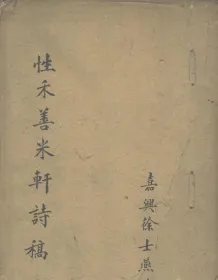 性禾善米軒詩稿
嘉興徐士燕